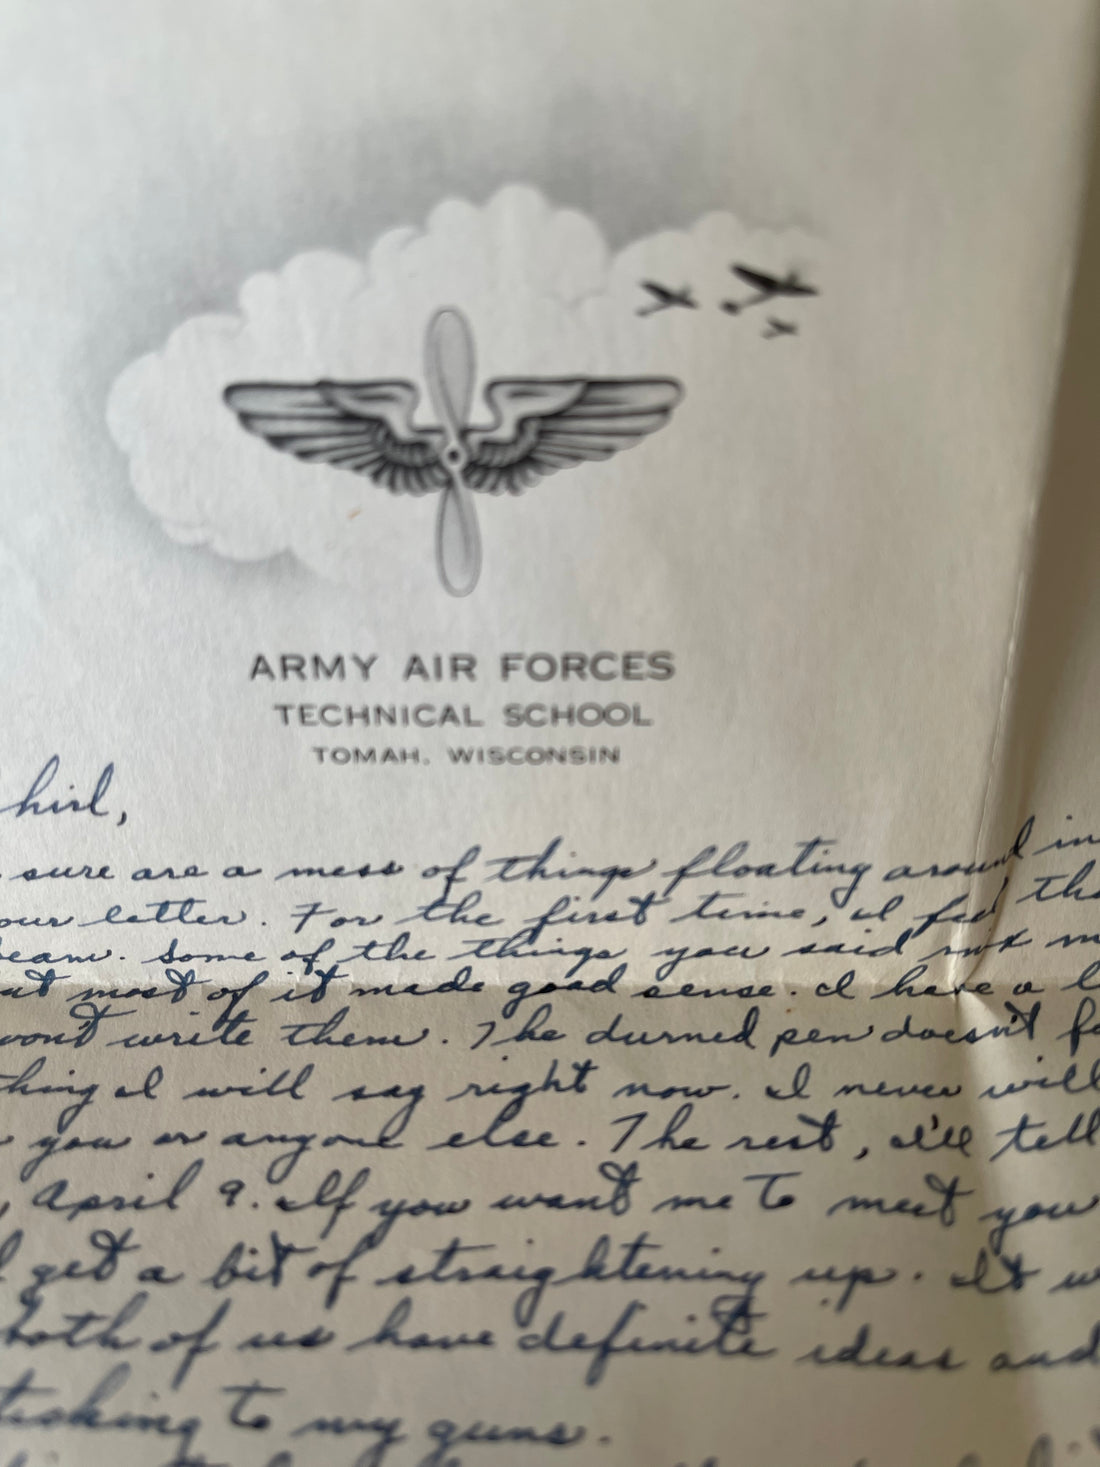 ARMY AIR FORCES
TECHNICAL SCHOOL
TOMAH, WISCONSIN
sure are a mess of things floating around in
our letter. For the first time, I feel tha
eam. Some of the things you said
ut most of it made good sense. I have a l
won't write them. The durned pen doesn't fe
thing I will say right now. I never will
you or anyone else. The rest, I'll tell
, April 9. If you want me to meet you
get a bit of straightening up. It w
both of us have definite ideas and
ticking to my guns.